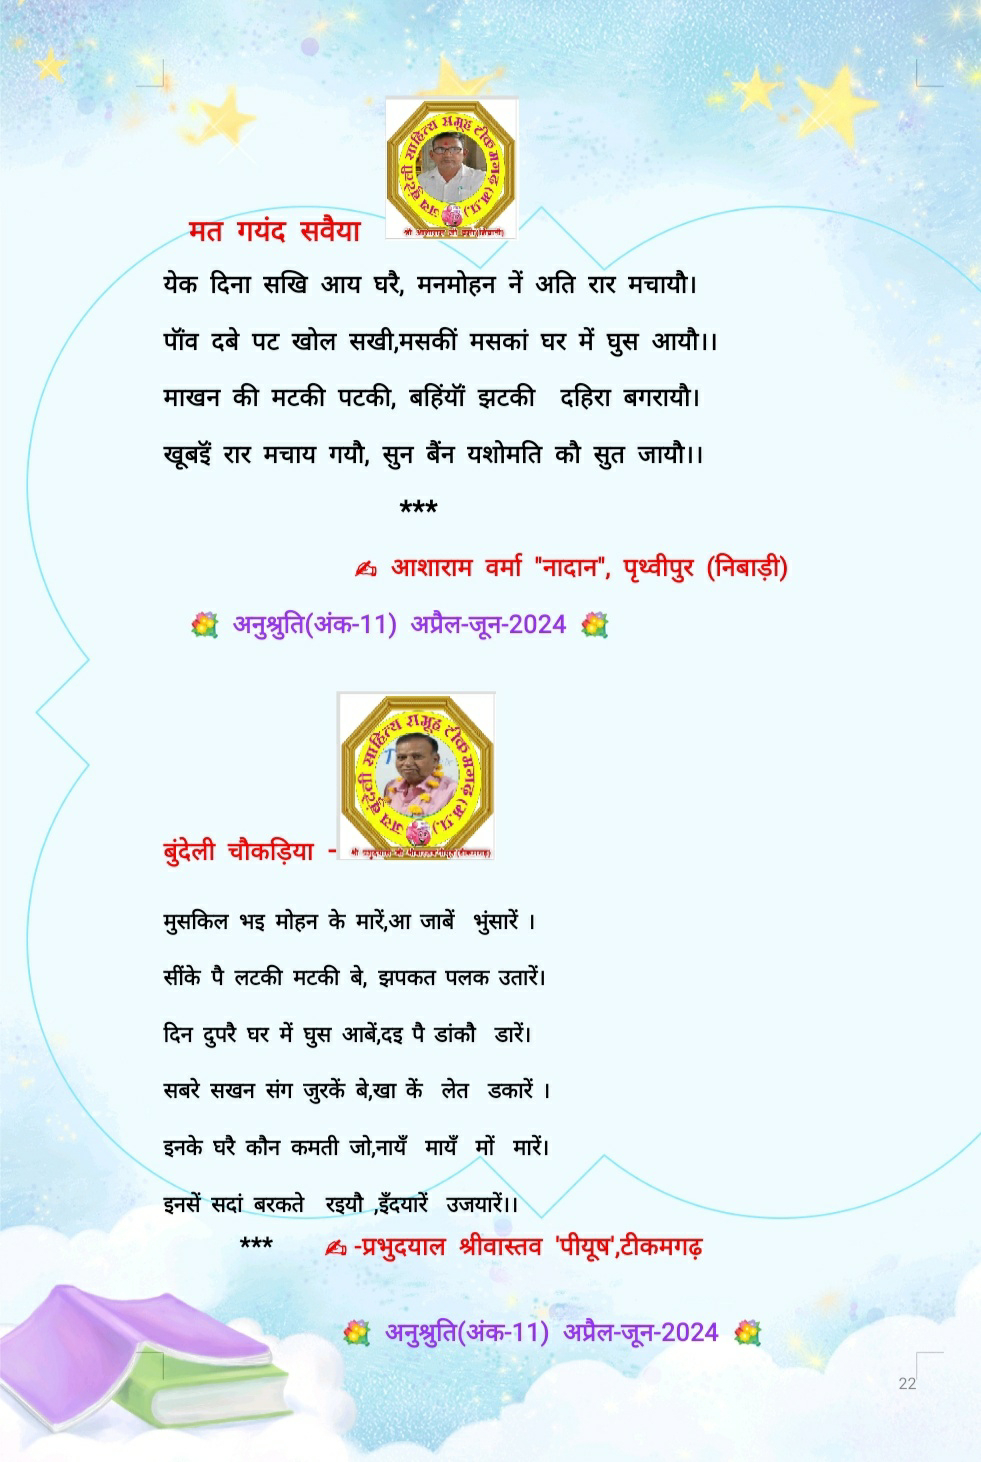 जय बुंदेली साहित्य समूह टीकमगढ़ (म.प्र.)
मत गयंद सवैया
येक दिना सखि आय घरै, मनमोहन नें अति रार मचायौ।
पॉंव दबे पट खोल सखी,मसकीं मसकां घर में घुस आयौ।।
माखन की मटकी पटकी, बहिंयॉं झटकी दहिरा बगरायौ।
खूबइॅं रार मचाय गयौ, सुन बैंन यशोमति कौ सुत जायौ।।
***
✍️ आशाराम वर्मा "नादान", पृथ्वीपुर (निबाड़ी)
💐 अनुश्रुति(अंक-11) अप्रैल-जून-2024 💐
जय बुंदेली साहित्य समूह टीकमगढ़ (म.प्र.)
बुंदेली चौकड़िया -
मुसकिल भइ मोहन के मारें,आ जाबें भुंसारें ।
सींके पै लटकी मटकी बे, झपकत पलक उतारें।
दिन दुपरै घर में घुस आबें,दइ पै डांकौ डारें।
सबरे सखन संग जुरकें बे,खा कें लेत डकारें ।
इनके घरै कौन कमती जो,नायँ मायँ मों मारें।
इनसें सदां बरकते रइयौ ,इँदयारें उजयारें।।
*** ✍️ -प्रभुदयाल श्रीवास्तव 'पीयूष',टीकमगढ़
💐 अनुश्रुति(अंक-11) अप्रैल-जून-2024 💐
22